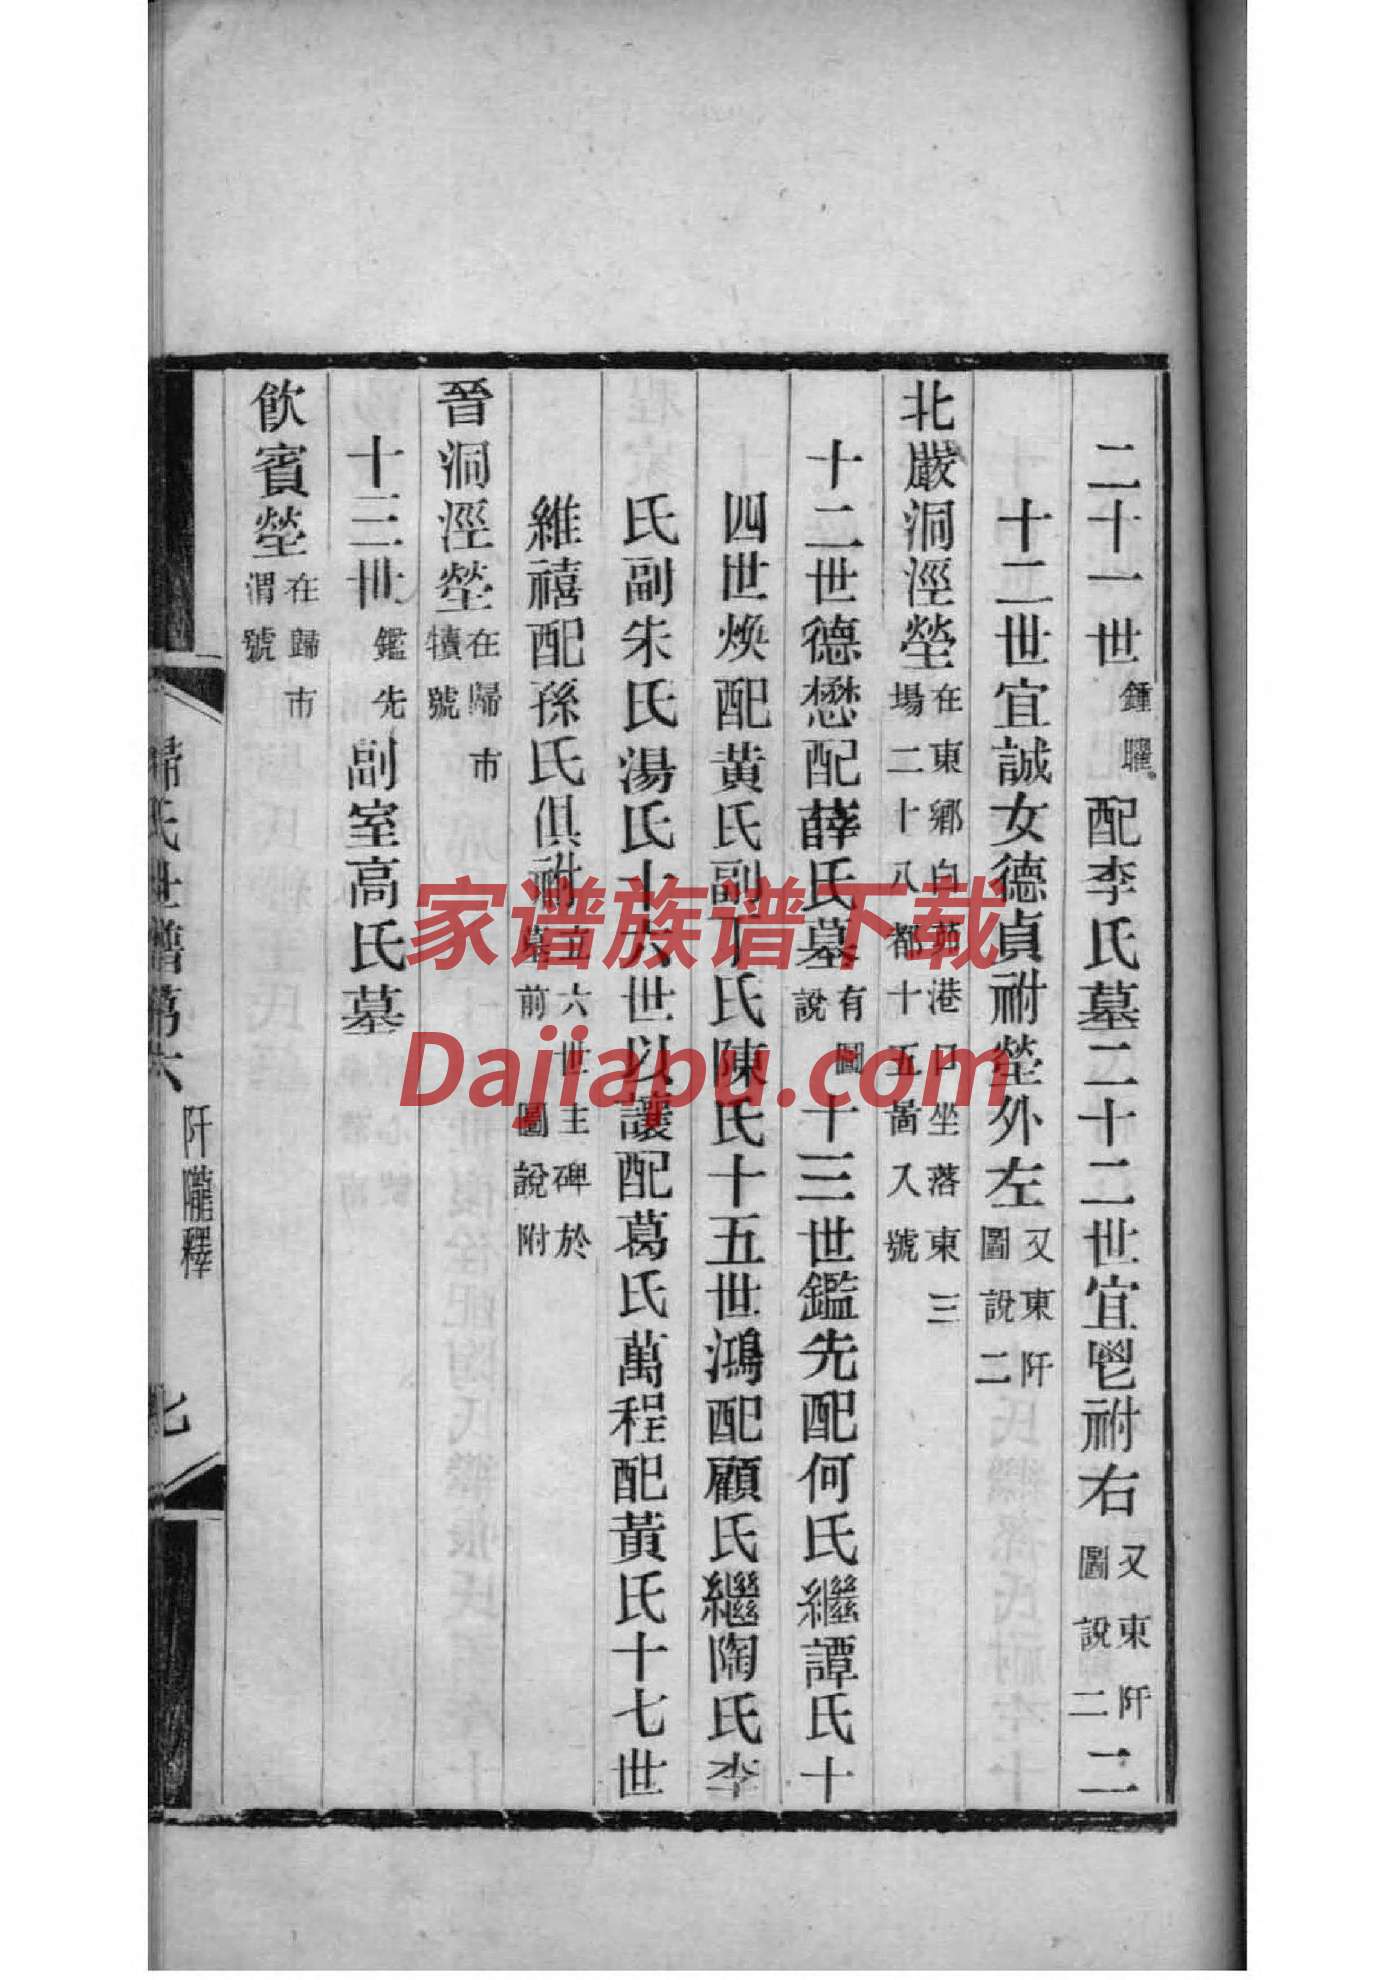 二十一世鍾曜配李氏墓二十二世宜鬯祔右又東阡圖說二二
十二世宜誠女德貞祔塋外左又東阡圖說二
北巖洞涇塋在東鄉白茆港口坐落東三場二十八都十五啚入號
十二世德懋配薛氏墓有圖說十三世鑑先配何氏繼譚氏十
四世煥配黃氏副丁氏陳氏十五世鴻配顧氏繼陶氏李
氏副朱氏湯氏十六世以讓配葛氏萬程配黃氏十七世
維禧配孫氏俱祔五六世主碑於墓前圖說附
晉洞涇塋在歸市犢號
十三世鑑先副室高氏墓
飲賓塋在歸市渭號
歸氏世譜 第六 阡隴釋 七
家谱族谱下载
Dajiapu.com